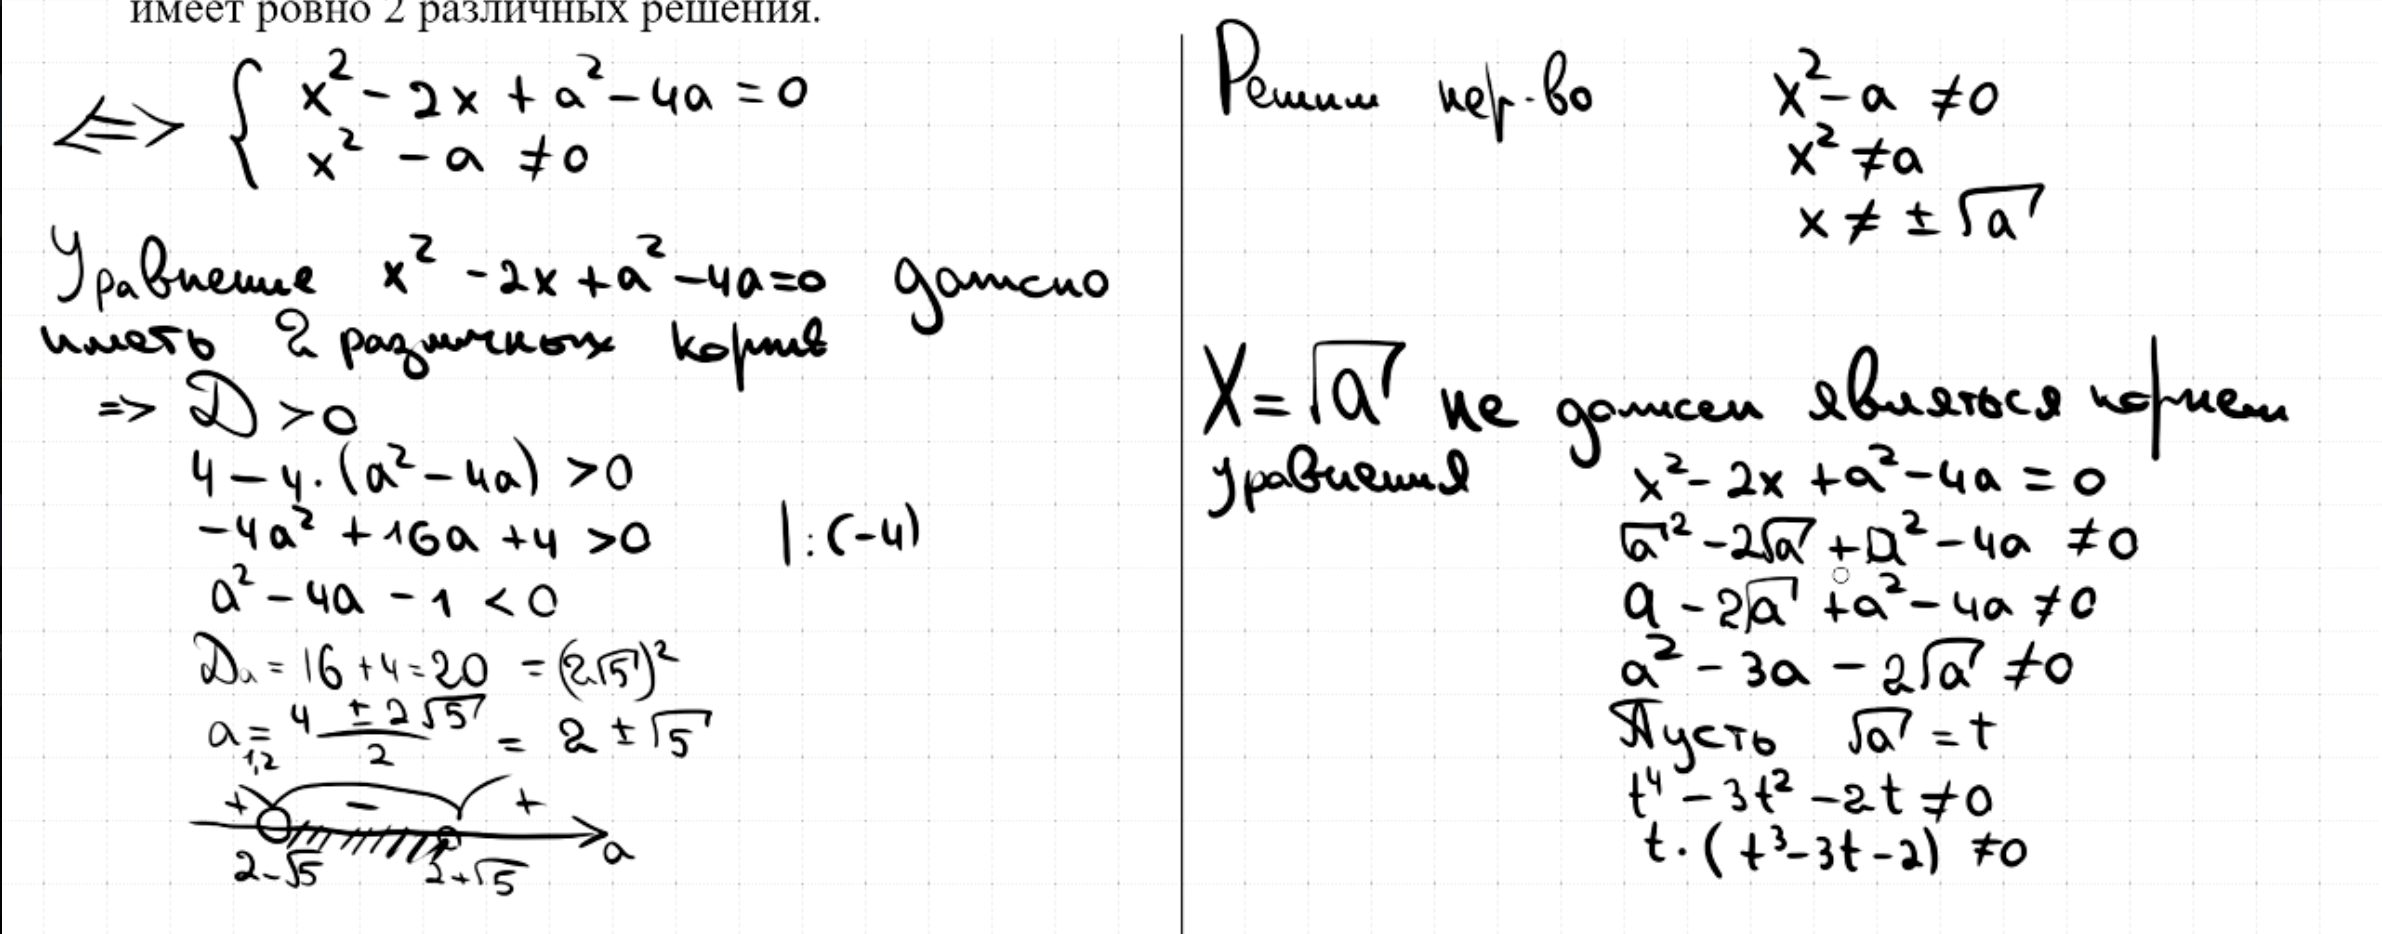 имеет ровно 2 различных решения.
⟺ { x² - 2x + a² - 4a = 0
x² - a ≠ 0
Уравнение x² - 2x + a² - 4a = 0 должно
иметь 2 различных корня
=> D > 0
4 - 4·(a² - 4a) > 0
-4a² + 16a + 4 > 0 |:(-4)
a² - 4a - 1 < 0
Dₐ = 16 + 4 = 20 = (2√5)²
a₁,₂ = (4 ± 2√5)/2 = 2 ± √5
+ - +
2-√5 2+√5 a
Решим нер-во x² - a ≠ 0
x² ≠ a
x ≠ ± √a
X = √a не должен являться корнем
уравнения x² - 2x + a² - 4a = 0
√a² - 2√a + a² - 4a ≠ 0
a - 2√a + a² - 4a ≠ 0
a² - 3a - 2√a ≠ 0
Пусть √a = t
t⁴ - 3t² - 2t ≠ 0
t·(t³ - 3t - 2) ≠ 0